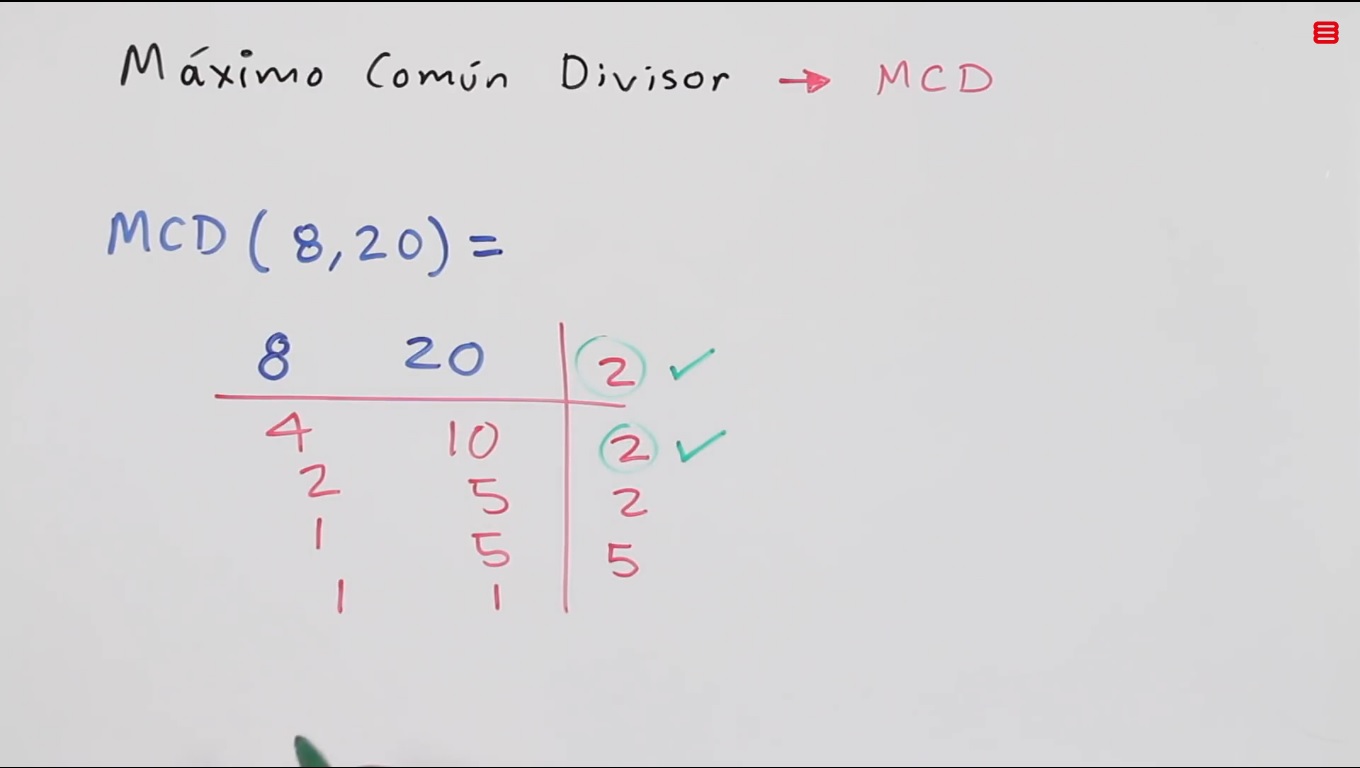 Máximo Común Divisor → MCD
MCD (8,20) =
8 20 2 ✓
4 10 2 ✓
2 5 2
1 5 5
1 1